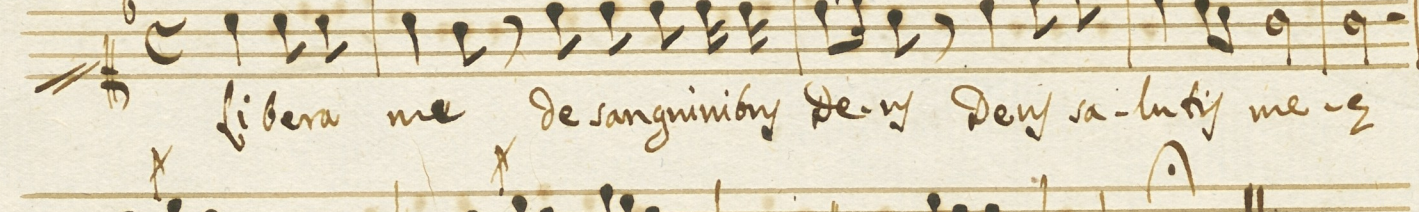 Libera me de sanguinibus De-us Deus sa-lutis me-ę